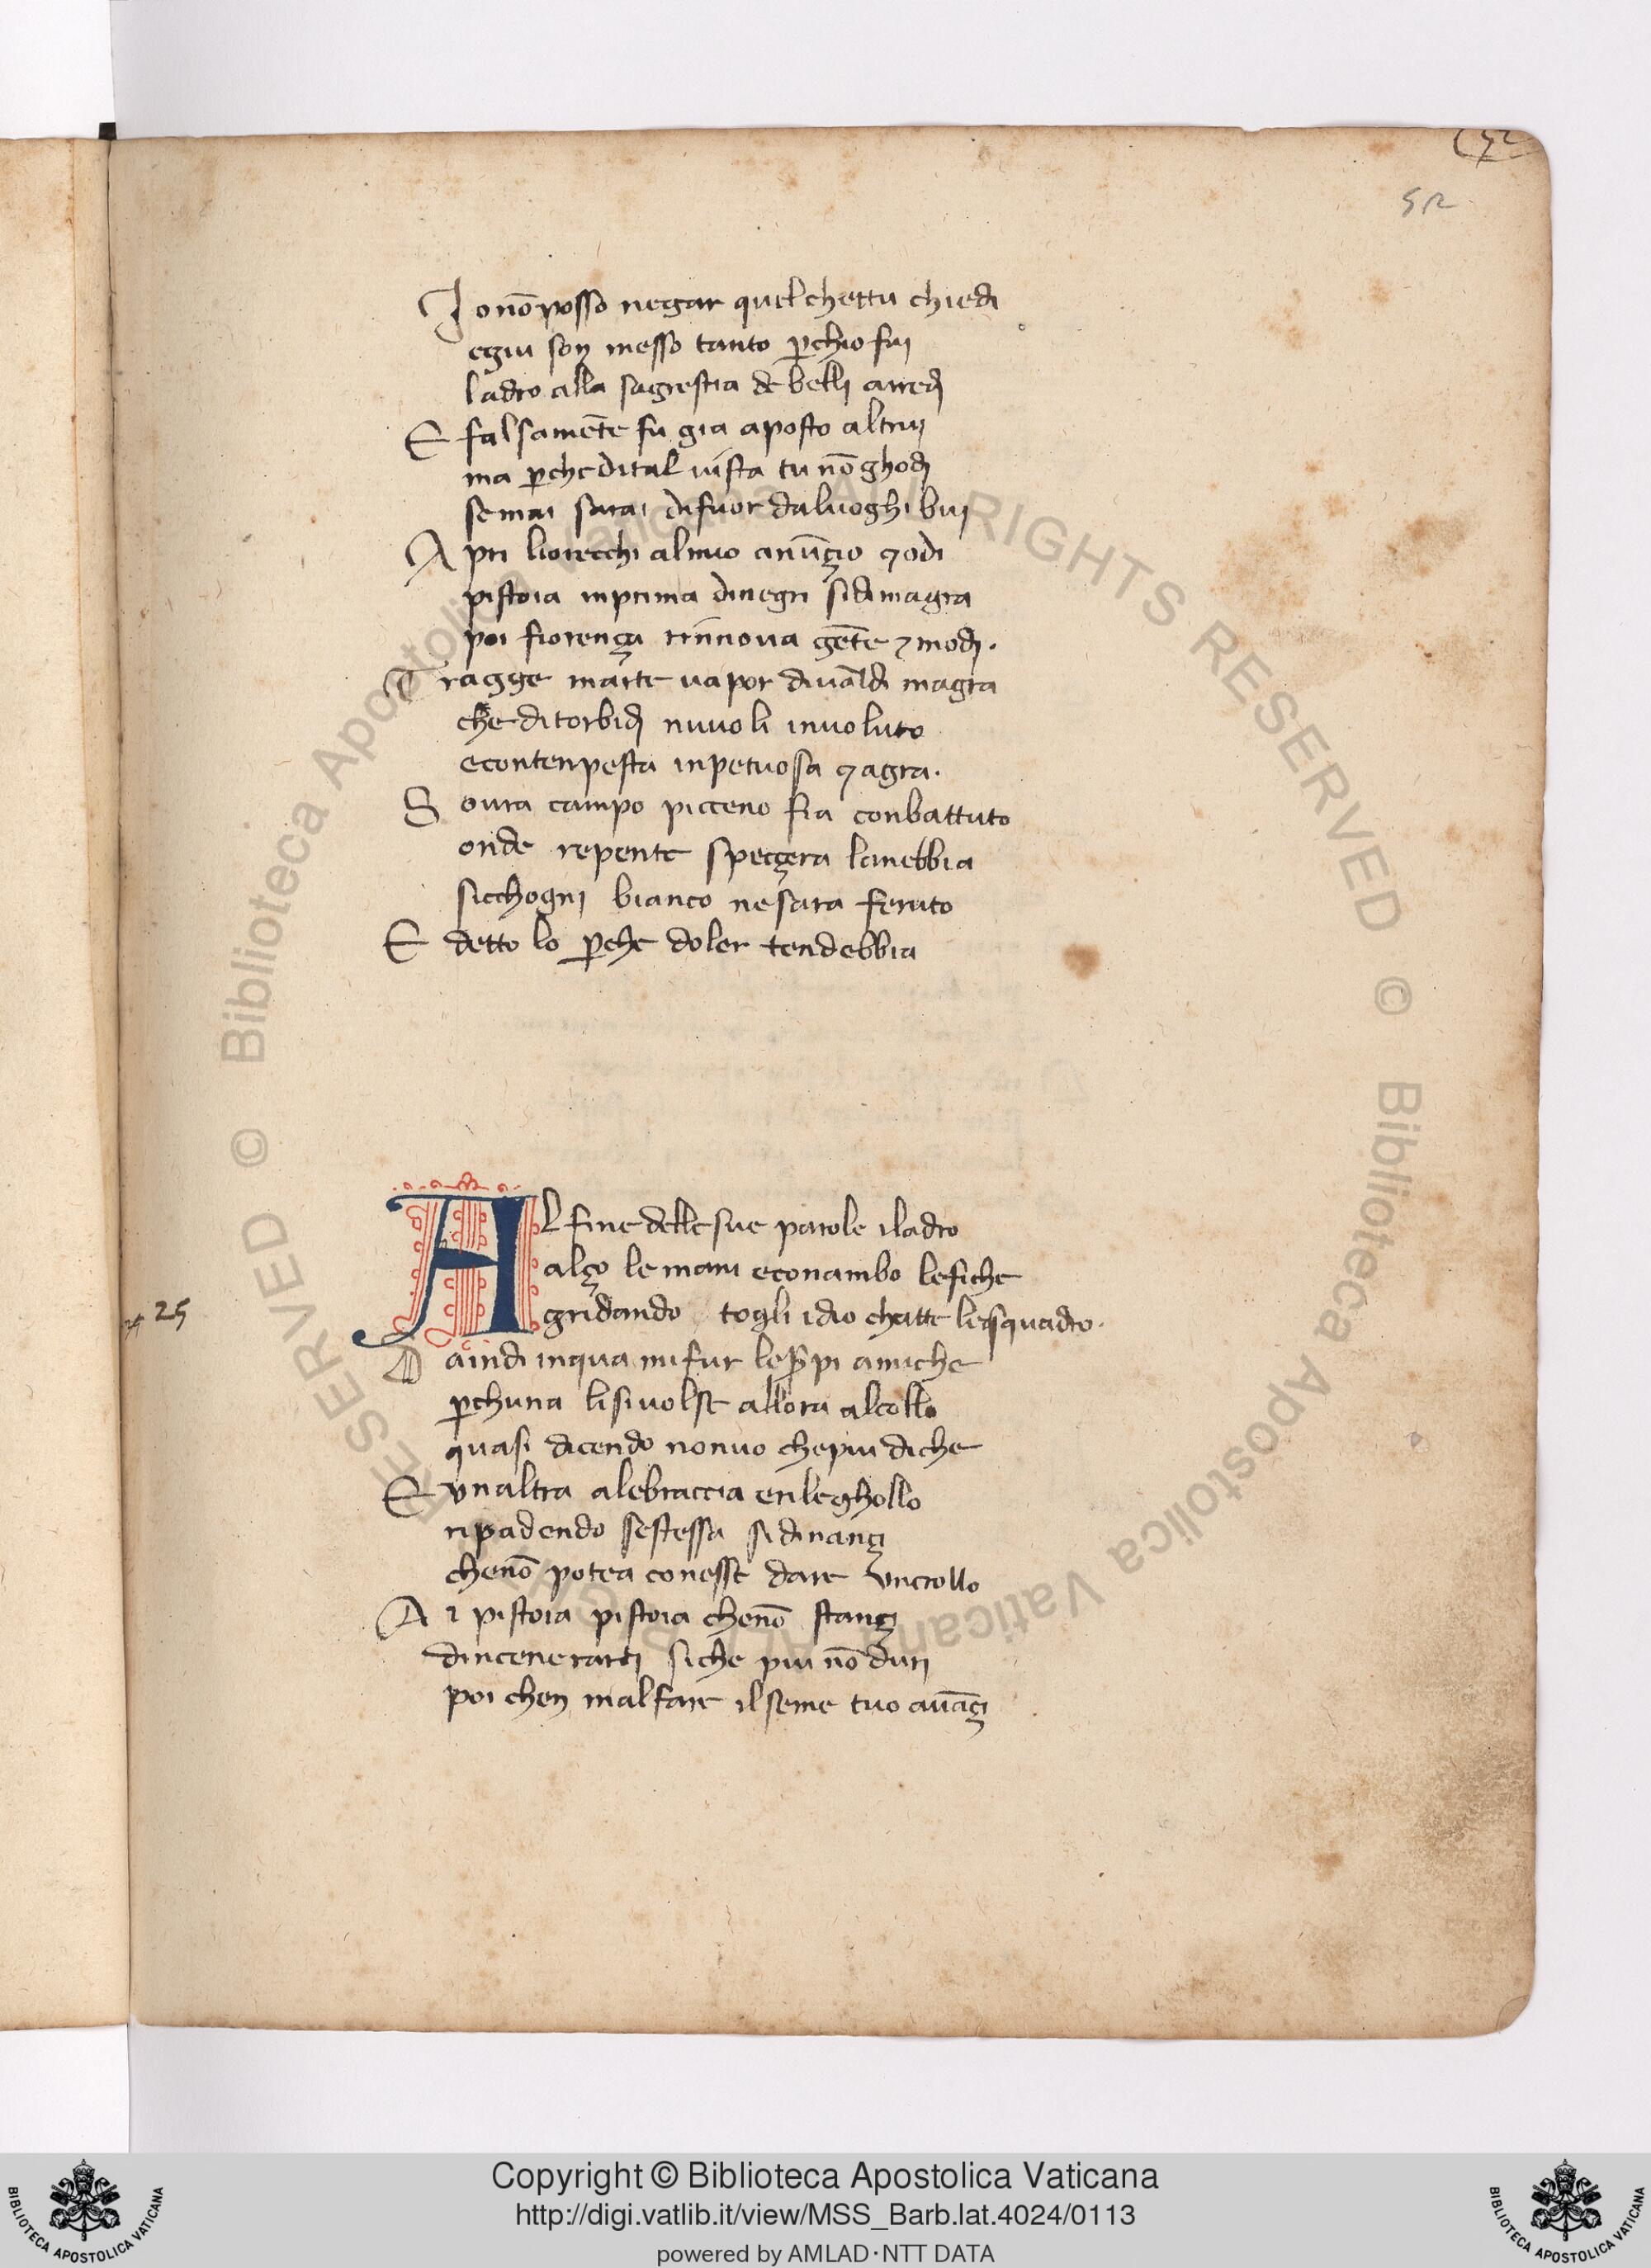 52
52
Io nõ posso negar quel chettu chiedi
egiu son messo tanto ꝑchio fui
ladro alla sagrestia de belli arredi
E falsamẽte fu gia aposto altrui
ma ꝑche dital uista tu nõ ghodi
se mai sarai difuor daluoghi bui
A pri liorecchi almio anũçio ⁊ odi
pistoia inprima dinegri sidimagra
poi fiorença rinnoua gẽte ⁊ modi.
T ragge marte uapor diualdi magra
che ditorbidi nuuoli inuoluto
econtenpesta inpetuosa ⁊ agra.
S oura campo picceno fia conbattuto
onde repente specçera lanebbia
sicchogni bianco nesara feruto
E detto lo ꝑche doler tendebbia
Al fine delle sue parole iladro
alço le mani econambo lefiche
gridando togli idio chatte lesquadro.
25
D aindi inqua mifur leserpi amiche
ꝑchuna lisiuolse allora alcollo
quasi dicendo nonuo chepiu diche
E vnaltra alebraccia erileghollo
ripadendo sestessa sidinançi
chenõ potea conesse dare vncrollo
A i pistoia pistoia chenõ stançi
dincenerarti siche piu nõ duri
poi chen malfare ilseme tuo auãçi
© Biblioteca Apostolica Vaticana ALL RIGHTS RESERVED © Biblioteca Apostolica Vaticana ALL RIGHTS RESERVED
Copyright © Biblioteca Apostolica Vaticana
http://digi.vatlib.it/view/MSS_Barb.lat.4024/0113
powered by AMLAD·NTT DATA
BIBLIOTECA APOSTOLICA VATICANA
BIBLIOTECA APOSTOLICA VATICANA